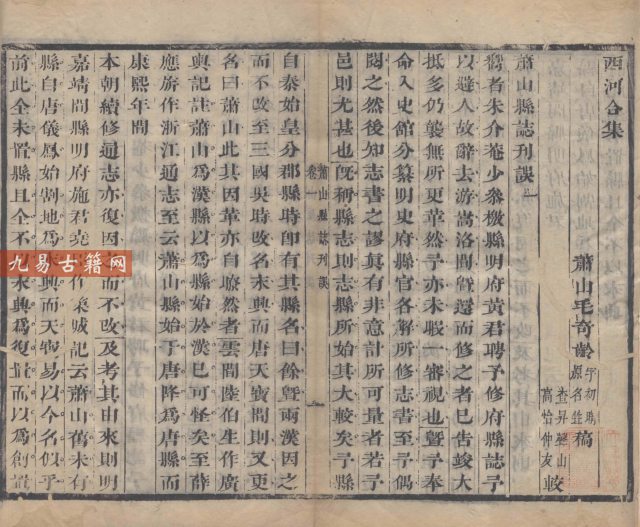 西河合集
蕭山毛奇齡字初晴
原名甡稿
蕭山縣誌刊誤一
嚮者朱介菴少參檄縣明府黃君聘予修府縣誌予
以遠人故辭去游嵩洛間曁還而修之者已吿竣大
抵多仍襲無所更革然予亦未暇一審視也曁予奉
命入史館分纂明史府縣各解所修志書至予偶
閱之然後知志書之謬眞有非意計所可量者若予
邑則尤甚也旣稱縣志則志縣所始其大較矣予縣
蕭山縣誌刊誤
卷一
一
自秦始皇分郡縣時卽有其縣名曰餘曁兩漢因之
而不改至三國吳時改名永興而唐天寶間則又更
名曰蕭山此其因革亦自暸然者雲間陸伯生作廣
輿記註蕭山爲漢縣以爲縣始於漢已可怪矣至薛
應旂作浙江通志至云蕭山縣始于唐降爲唐縣而
康熙年間
本朝續修通志亦復因
而不改及考其由來則明
嘉靖間縣明府施君堯
作
城記云蕭山舊未有
縣自唐儀鳳始割地爲
興而天寶易以今名似乎
前此全未置縣且全不
永興爲復置而以爲創置
九易古籍网